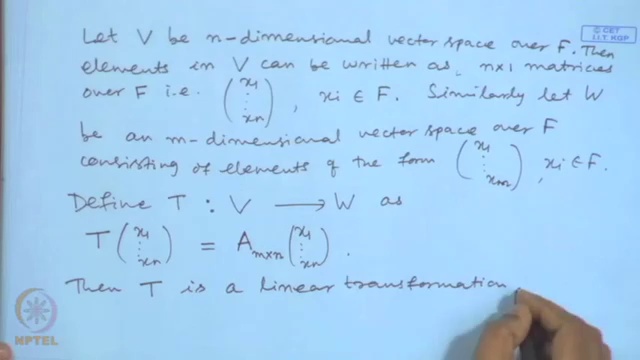 © CET
I.I.T. KGP
Let V be n-dimensional vector space over F. Then
elements in V can be written as, n×1 matricies
over F i.e. (x1 ⋮ xn) , xi ∈ F. Similarly let W
be an m-dimensional vector space over F
consisting of elements of the form (x1 ⋮ xm) , xi ∈ F.
Define T : V ⟶ W as
T(x1 ⋮ xn) = A m×n (x1 ⋮ xn) .
Then T is a linear transformation
NPTEL